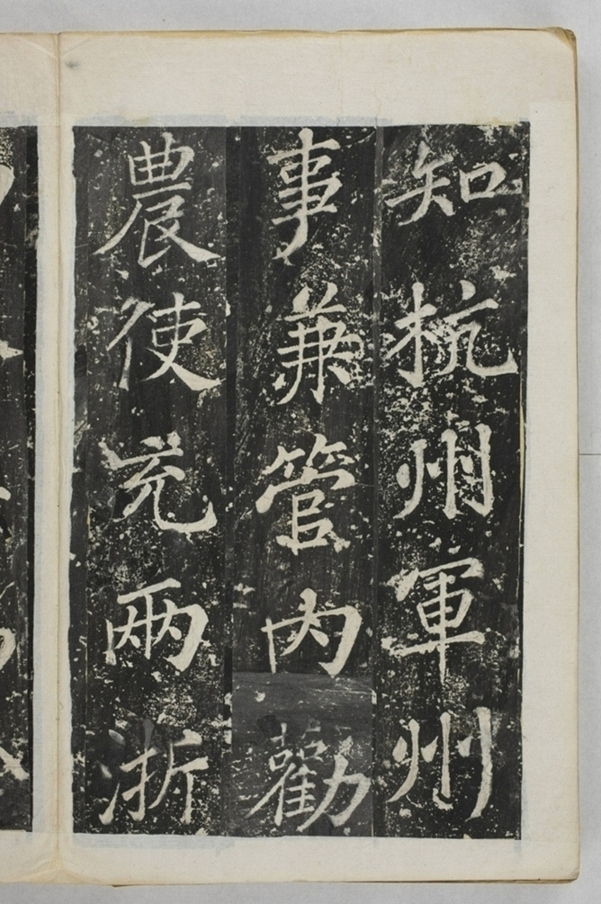 知杭州軍州
事兼管内勸
農使充兩浙